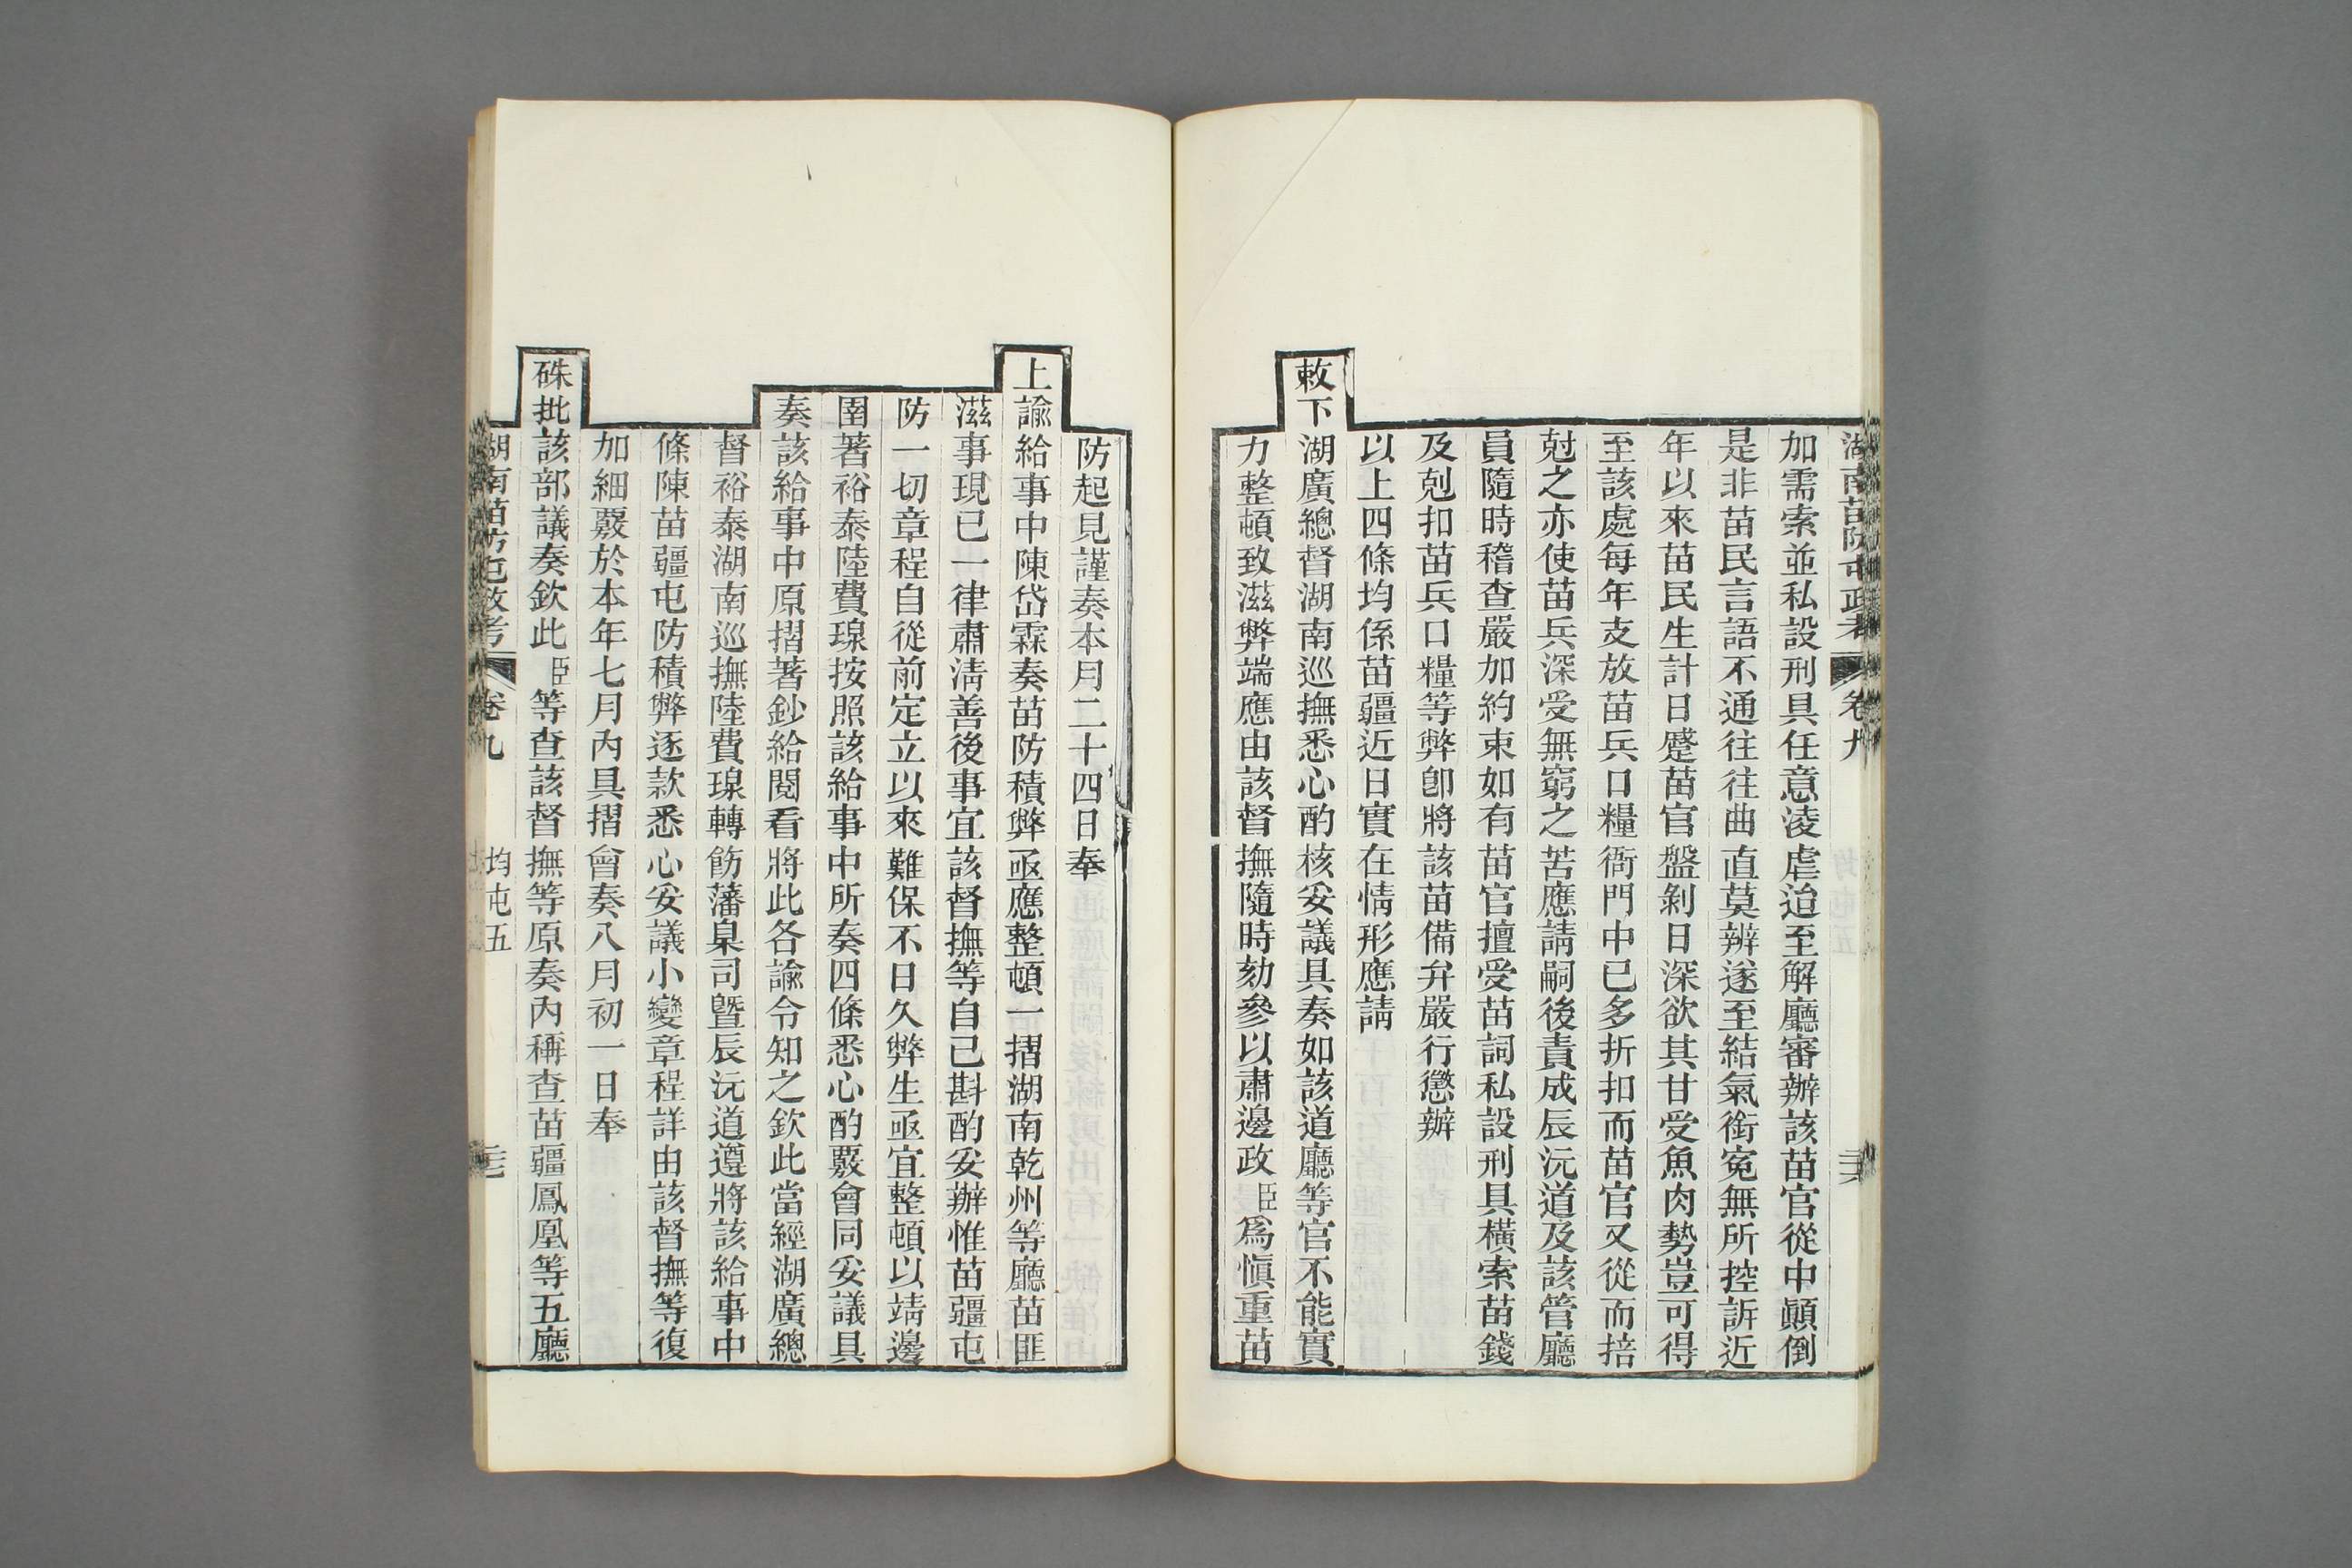 湖南苗防屯政考 卷九 三六
加需索並私設刑具任意凌虐迨至解廳審辦該苗官從中顚倒
是非苗民言語不通往往曲直莫辨遂至結氣銜寃無所控訴近
年以來苗民生計日蹙苗官盤剝日深欲其甘受魚肉勢豈可得
至該處每年支放苗兵口糧衙門中已多折扣而苗官又從而掊
尅之亦使苗兵深受無窮之苦應請嗣後責成辰沅道及該管廳
員隨時稽查嚴加約束如有苗官擅受苗詞私設刑具橫索苗錢
及剋扣苗兵口糧等弊卽將該苗備弁嚴行懲辦
以上四條均係苗疆近日實在情形應請
敕下湖廣總督湖南巡撫悉心酌核妥議具奏如該道廳等官不能實
力整頓致滋弊端應由該督撫隨時劾參以肅邊政臣爲愼重苗
防起見謹奏本月二十四日奉
上諭給事中陳岱霖奏苗防積弊亟應整頓一摺湖南乾州等廳苗匪
滋事現已一律肅淸善後事宜該督撫等自已斟酌妥辦惟苗疆屯
防一切章程自從前定立以來難保不日久弊生亟宜整頓以靖邊
圉著裕泰陸費瑔按照該給事中所奏四條悉心酌覈會同妥議具
奏該給事中原摺著鈔給閱看將此各諭令知之欽此當經湖廣總
督裕泰湖南巡撫陸費瑔轉飭藩臬司暨辰沅道遵將該給事中
條陳苗疆屯防積弊逐款悉心妥議小變章程詳由該督撫等復
加細覈於本年七月內具摺會奏八月初一日奉
硃批該部議奏欽此臣等查該督撫等原奏內稱查苗疆鳳凰等五廳
湖南苗防屯政考 卷九 均屯五 三七